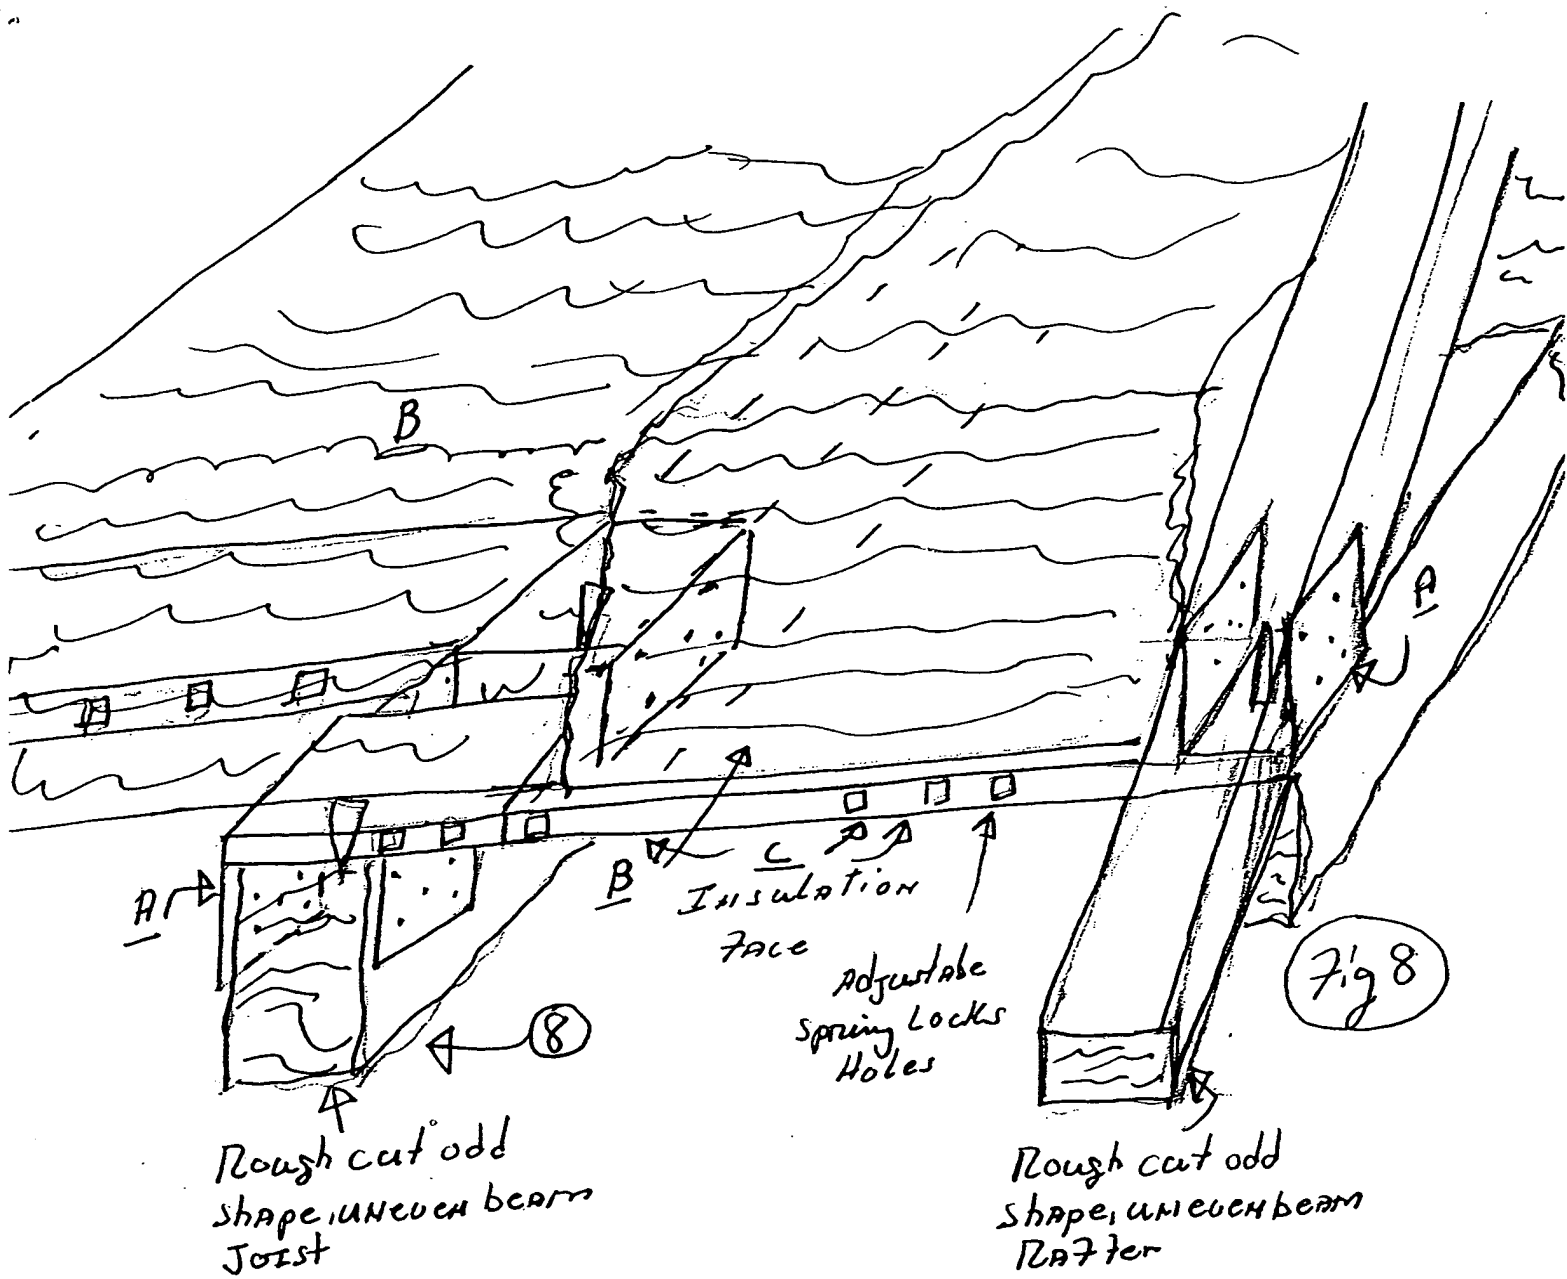 B
A
A
B
C
Insulation
Face
Adjustabe
Spring Locks
Holes
8
Fig 8
Rough cut odd
shape, uneven beam
Joist
Rough cut odd
shape, uneven beam
Rafter